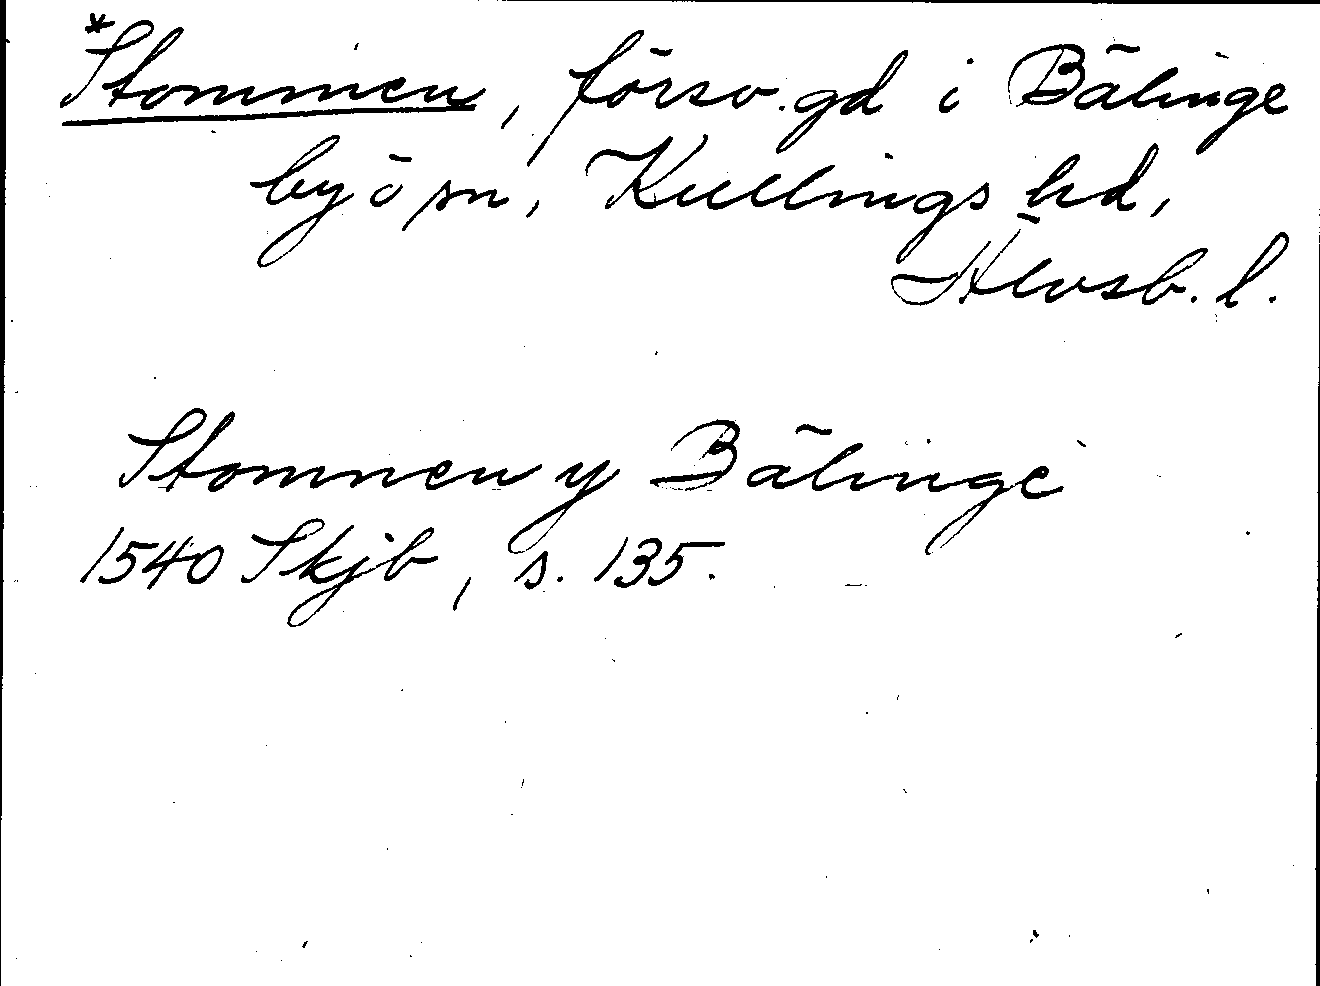 *Stommen, försv. gd i Bälinge
by o sn, Kullings hd,
Älvsb. l.
Stomnen y Bälinge
1540 Skjb, s. 135.